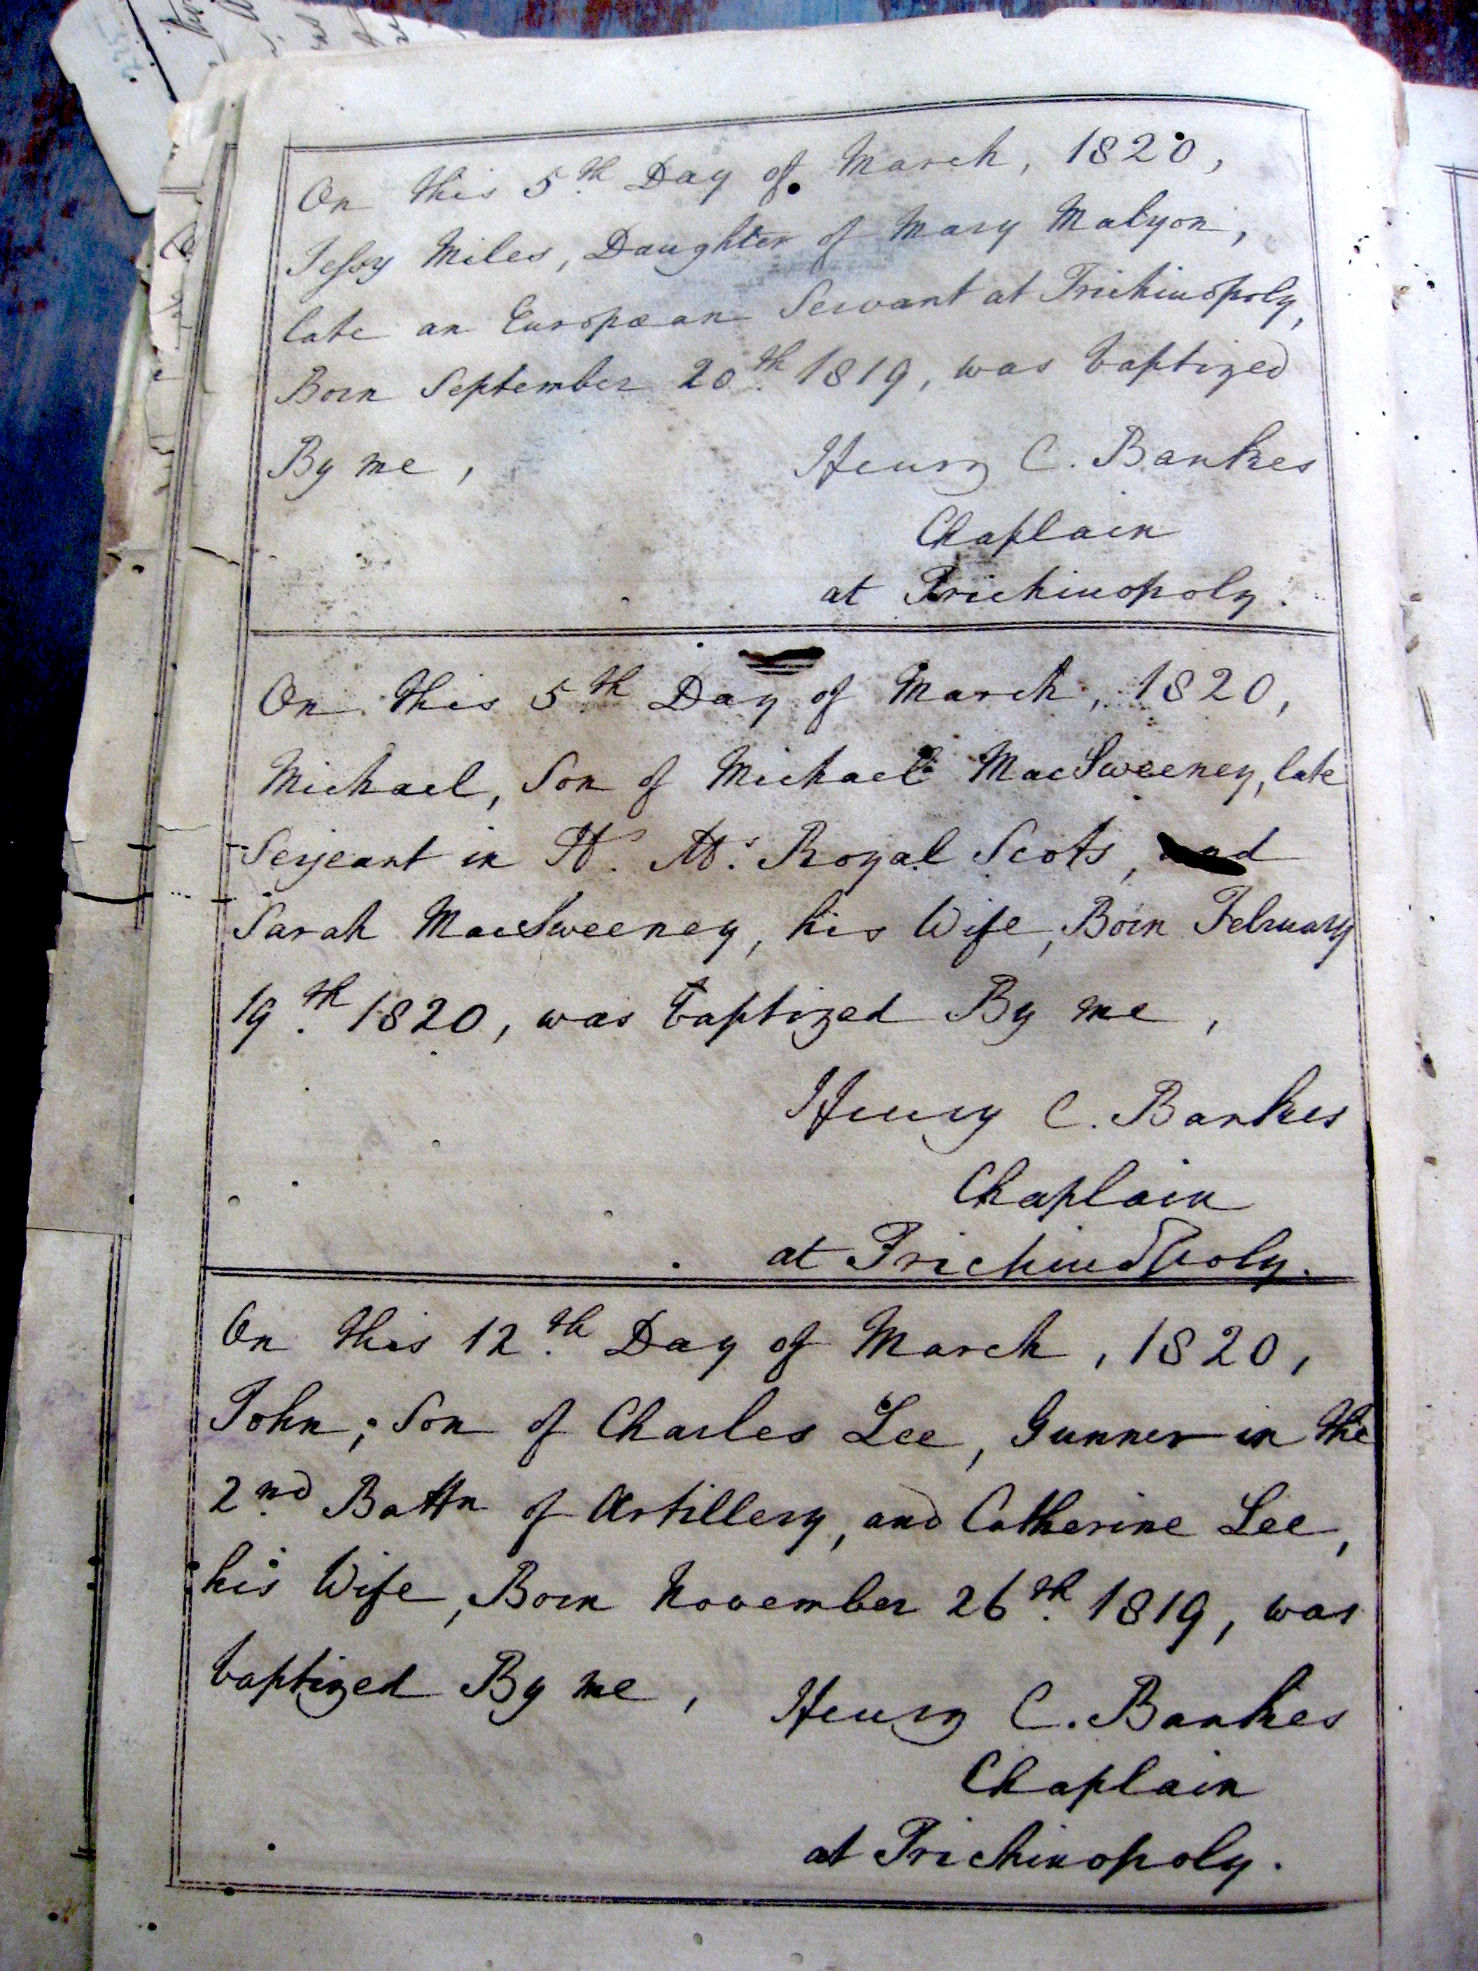 On this 5th Day of March, 1820,
Jessy Miles, Daughter of Mary Malyon,
late an European Servant at Trichinopoly,
Born September 20th 1819, was baptized
By me, Henry C. Bankes
Chaplain
at Trichinopoly.
On this 5th Day of March, 1820,
Michael, Son of Michael MacSweeney, late
Serjeant in H. M's. Royal Scots, and
Sarah MacSweeney, his Wife, Born February
19th 1820, was baptized By me,
Henry C. Bankes
Chaplain
at Trichinopoly.
On this 12th Day of March, 1820,
John, Son of Charles Lee, Gunner in the
2nd Battn of Artillery, and Catherine Lee,
his Wife, Born November 26th 1819, was
baptized By me, Henry C. Bankes
Chaplain
at Trichinopoly.